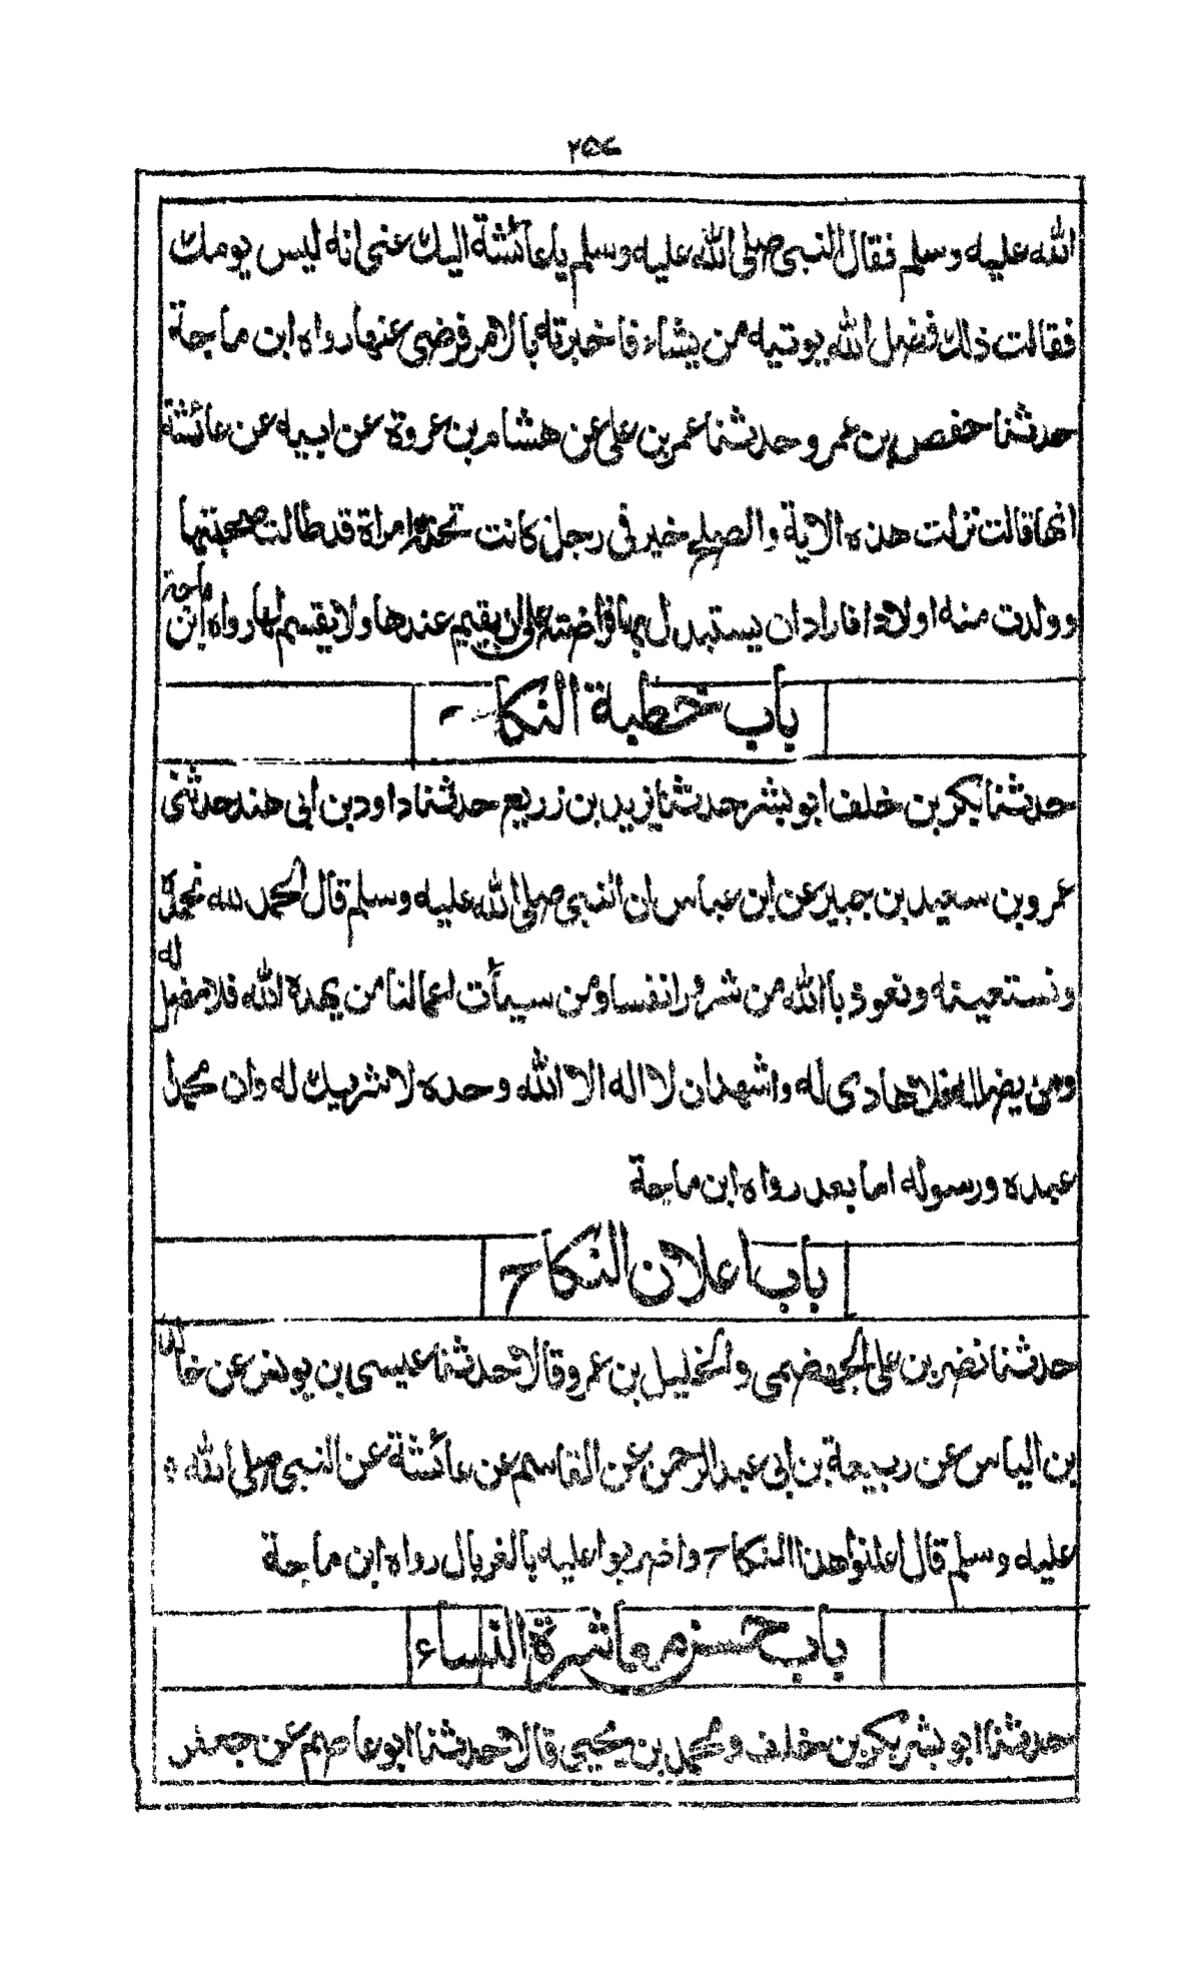 ٢٥٤
الله عليه وسلم فقال النبى صلى الله عليه وسلم يا عائشة اليك عنى انه ليس يومك
فقالت ذلك فضل الله يوتيه من يشاء فاخبرته بالامر فرضى عنها رواه ابن ماجة
حدثنا حفص بن عمرو حدثنا عمر بن على عن هشام بن عروة عن ابيه عن عائشة
انها قالت نزلت هذه الاية والصلح خير فى رجل كانت تحته امراة قد طالت صحبتها
وولدت منه اولادا فاراد ان يستبدل بها فراضته على ان يقيم عندها ولا يقسم لها رواه ابن ماجة
باب خطبة النكاح
حدثنا بكر بن خلف ابو بشر حدثنا يزيد بن زريع حدثنا داود بن ابى هند حدثنى
عمرو بن سعيد بن جبير عن ابن عباس ان النبى صلى الله عليه وسلم قال الحمد لله نحمده
ونستعينه ونعوذ باالله من شرور انفسا ومن سيأت اعمالنا من يهدة الله فلا مضل له
ومن يضلله فلا هادى له واشهد ان لا اله الا الله وحده لا شريك له وان محمدا
عبده ورسوله اما بعد رواه ابن ماجة
باب اعلان النكاح
حدثنا نضر بن على الجهضمى والخليل بن عمرو قالا حدثنا عيسى بن يونس عن خالد
بن الياس عن ربيعة بن ابى عبد الرحمن عن القاسم عن عائشة عن النبى صلى الله
عليه وسلم قال اعلنوا هذا النكاح واضربوا عليه بالغربال رواه ابن ماجة
باب حسن معاشرة النساء
حدثنا ابو بشر بكر بن خلف ومحمد بن يحيى قالا حدثنا ابو عاصم عن جعفر